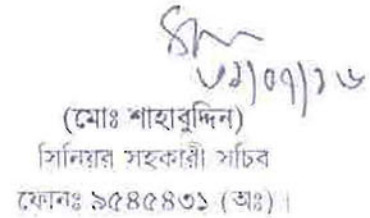 ৩১/০৭/১৬
(মোঃ শাহাবুদ্দিন)
সিনিয়র সহকারী সচিব
ফোনঃ ৯৫৪৫৪৩১ (অঃ)।